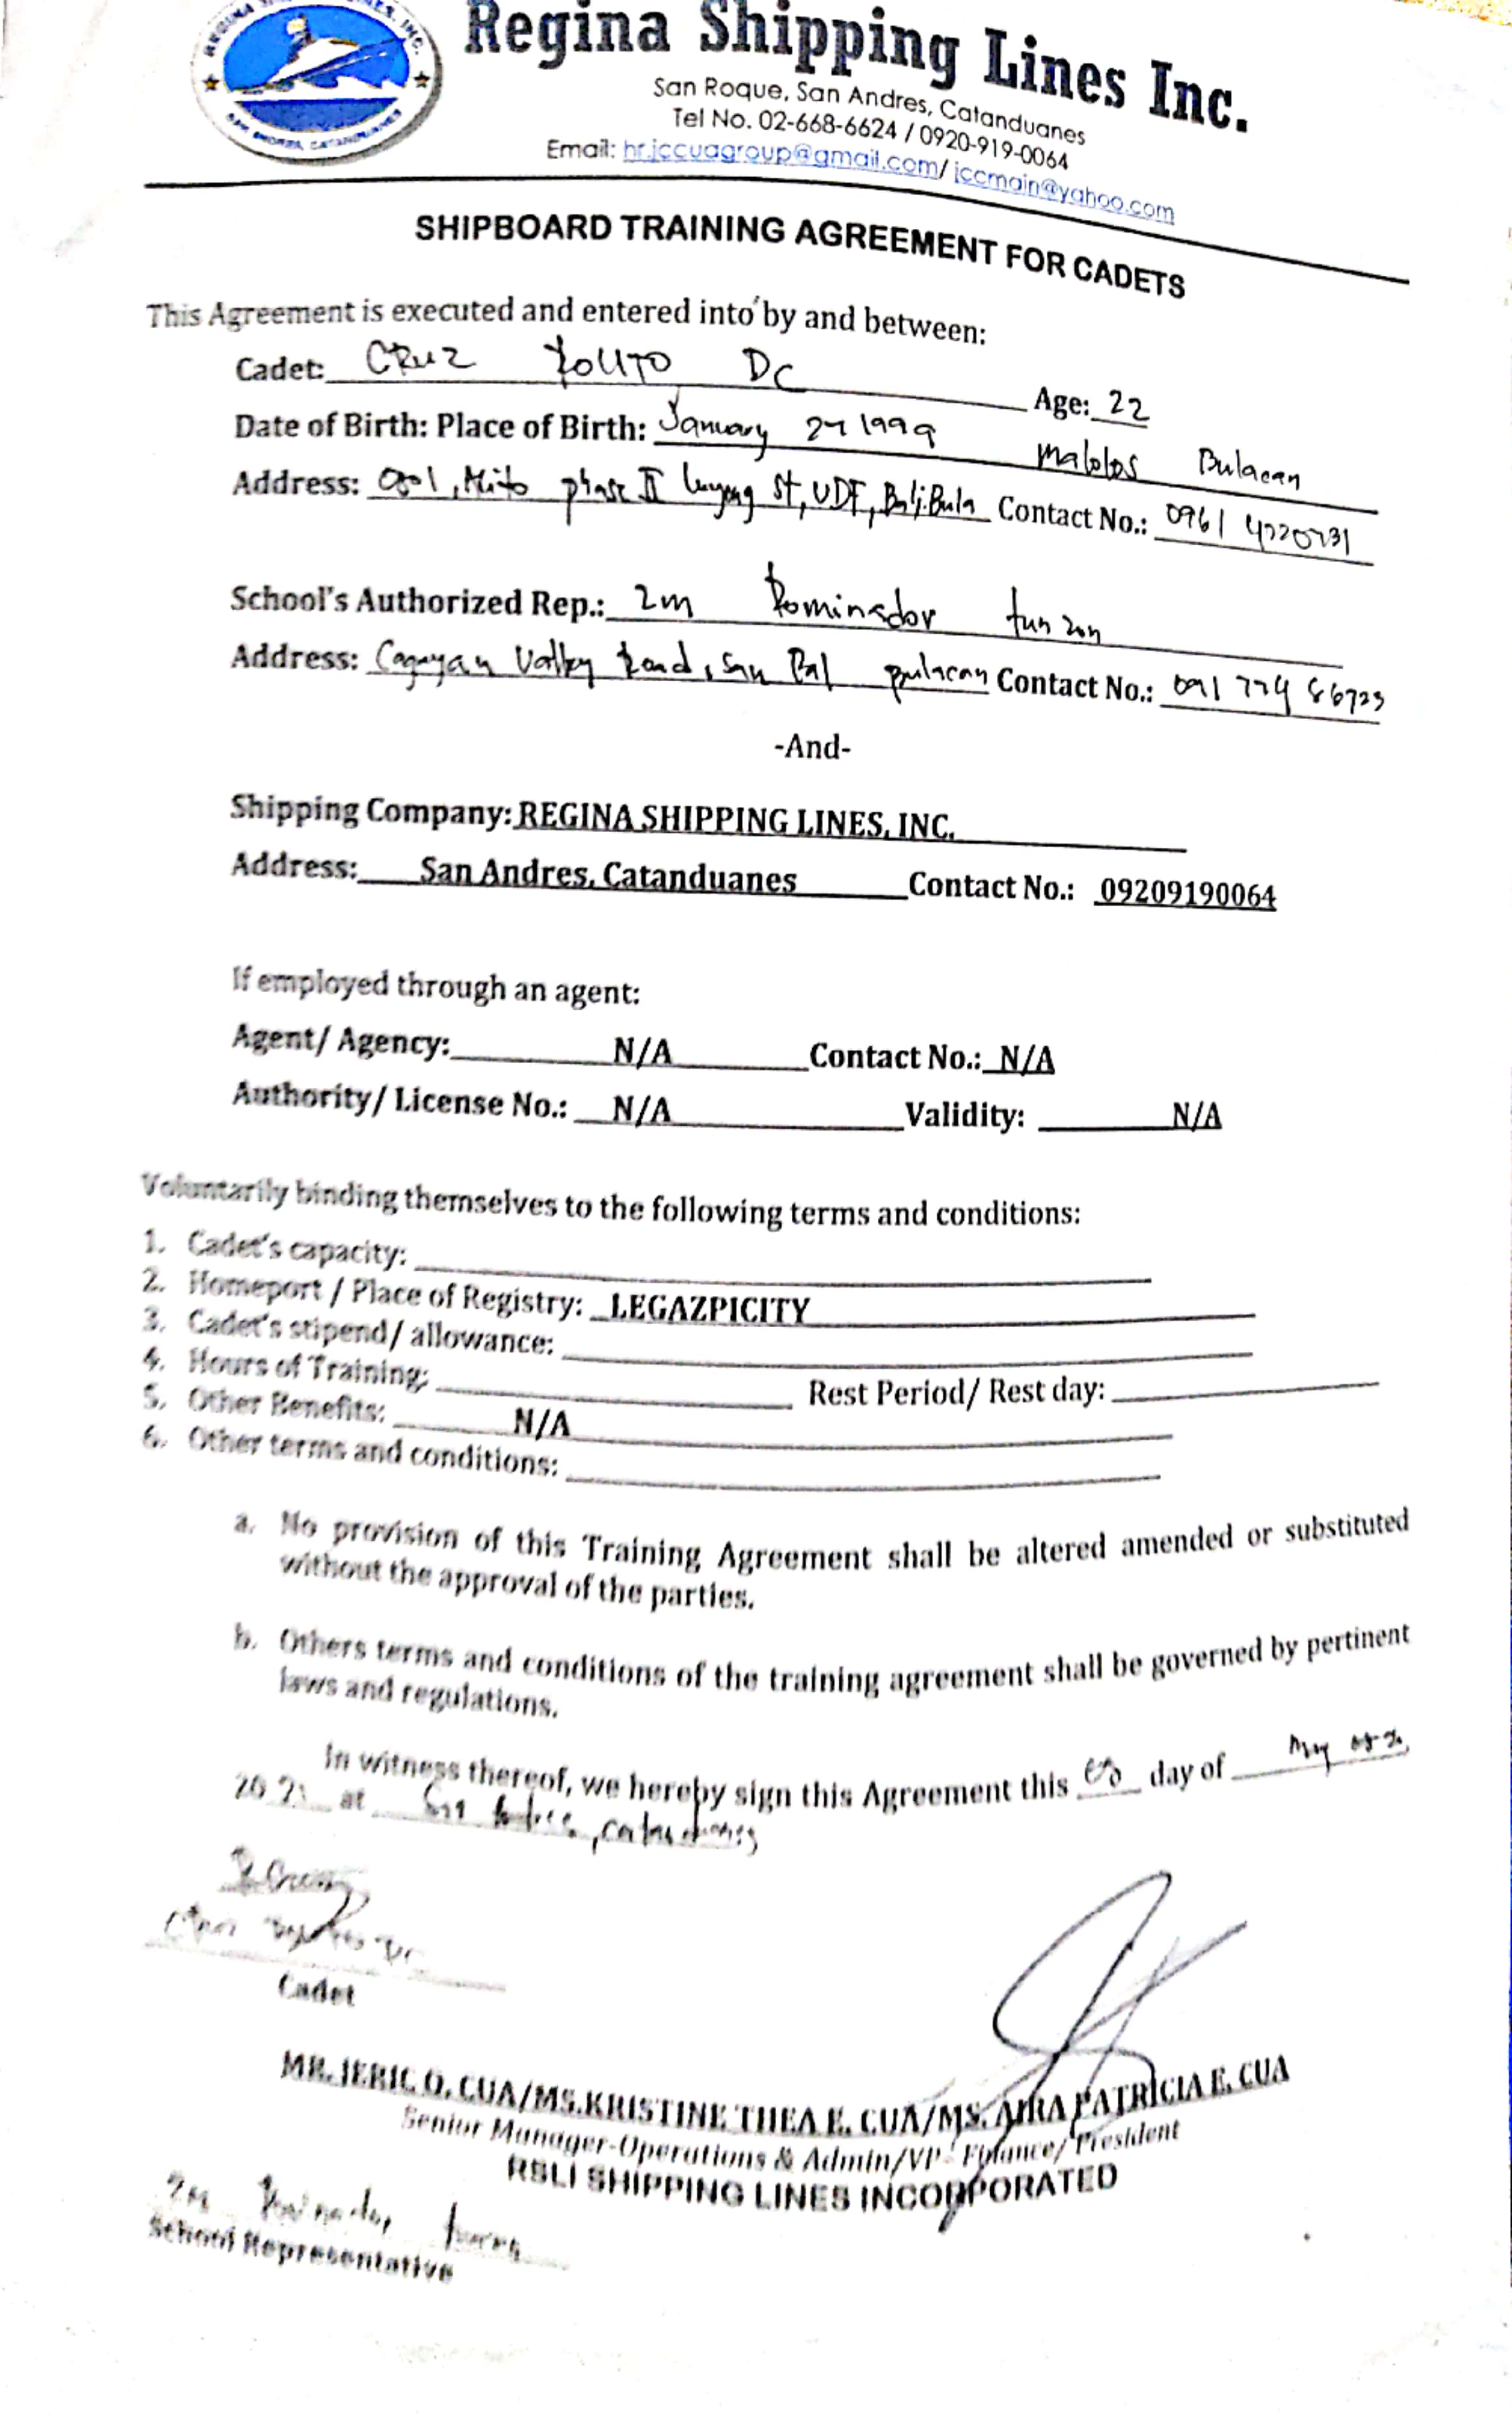 REGINA SHIPPING LINES, INC.
SAN ANDRES, CATANDUANES
Regina Shipping Lines Inc.
San Roque, San Andres, Catanduanes
Tel No. 02-668-6624 / 0920-919-0064
Email: hr.jccuagroup@gmail.com/ jccmain@yahoo.com
SHIPBOARD TRAINING AGREEMENT FOR CADETS
This Agreement is executed and entered into by and between:
Cadet: CRUZ DC Age: 22
Date of Birth: Place of Birth: January 27 1999 malolos Bulacan
Address: phase II St, UDF, Contact No.: 0961
School's Authorized Rep.: 2m Dominador tunzon
Address: Cagayan Valley Road, San bulacan Contact No.: 091 774 86723
-And-
Shipping Company: REGINA SHIPPING LINES, INC.
Address: San Andres, Catanduanes Contact No.: 09209190064
If employed through an agent:
Agent/ Agency: N/A Contact No.: N/A
Authority/ License No.: N/A Validity: N/A
Voluntarily binding themselves to the following terms and conditions:
1. Cadet's capacity:
2. Homeport / Place of Registry: LEGAZPICITY
3. Cadet's stipend/ allowance:
4. Hours of Training: Rest Period/ Rest day:
5. Other Benefits: N/A
6. Other terms and conditions:
a. No provision of this Training Agreement shall be altered amended or substituted
without the approval of the parties.
b. Others terms and conditions of the training agreement shall be governed by pertinent
laws and regulations.
In witness thereof, we hereby sign this Agreement this day of May
2021 at catanduanes
Cadet
MR. JERIC O. CUA/MS.KRISTINE THEA E. CUA/MS. AIRA PATRICIA E. CUA
Senior Manager-Operations & Admin/VP- Finance/ President
RSLI SHIPPING LINES INCORPORATED
2m Dominador
School Representative